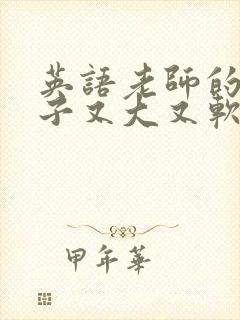 英語老師的
子又大又軟
甲年華